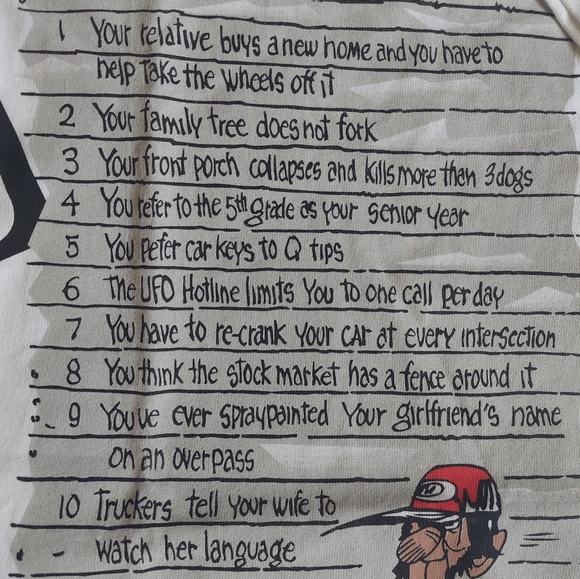 1 Your relative buys a new home and you have to
help Take the wheels off it
2 Your family tree does not fork
3 Your front porch collapses and kills more than 3 dogs
4 You refer to the 5th grade as your senior year
5 You Pefer car keys to Q tips
6 The UFO Hotline limits You to one call per day
7 You have to re-crank your car at every intersection
8 You think the stock market has a fence around it
9 Youve ever spraypainted Your girlfriend's name
on an overpass
10 Truckers tell your wife to
watch her language